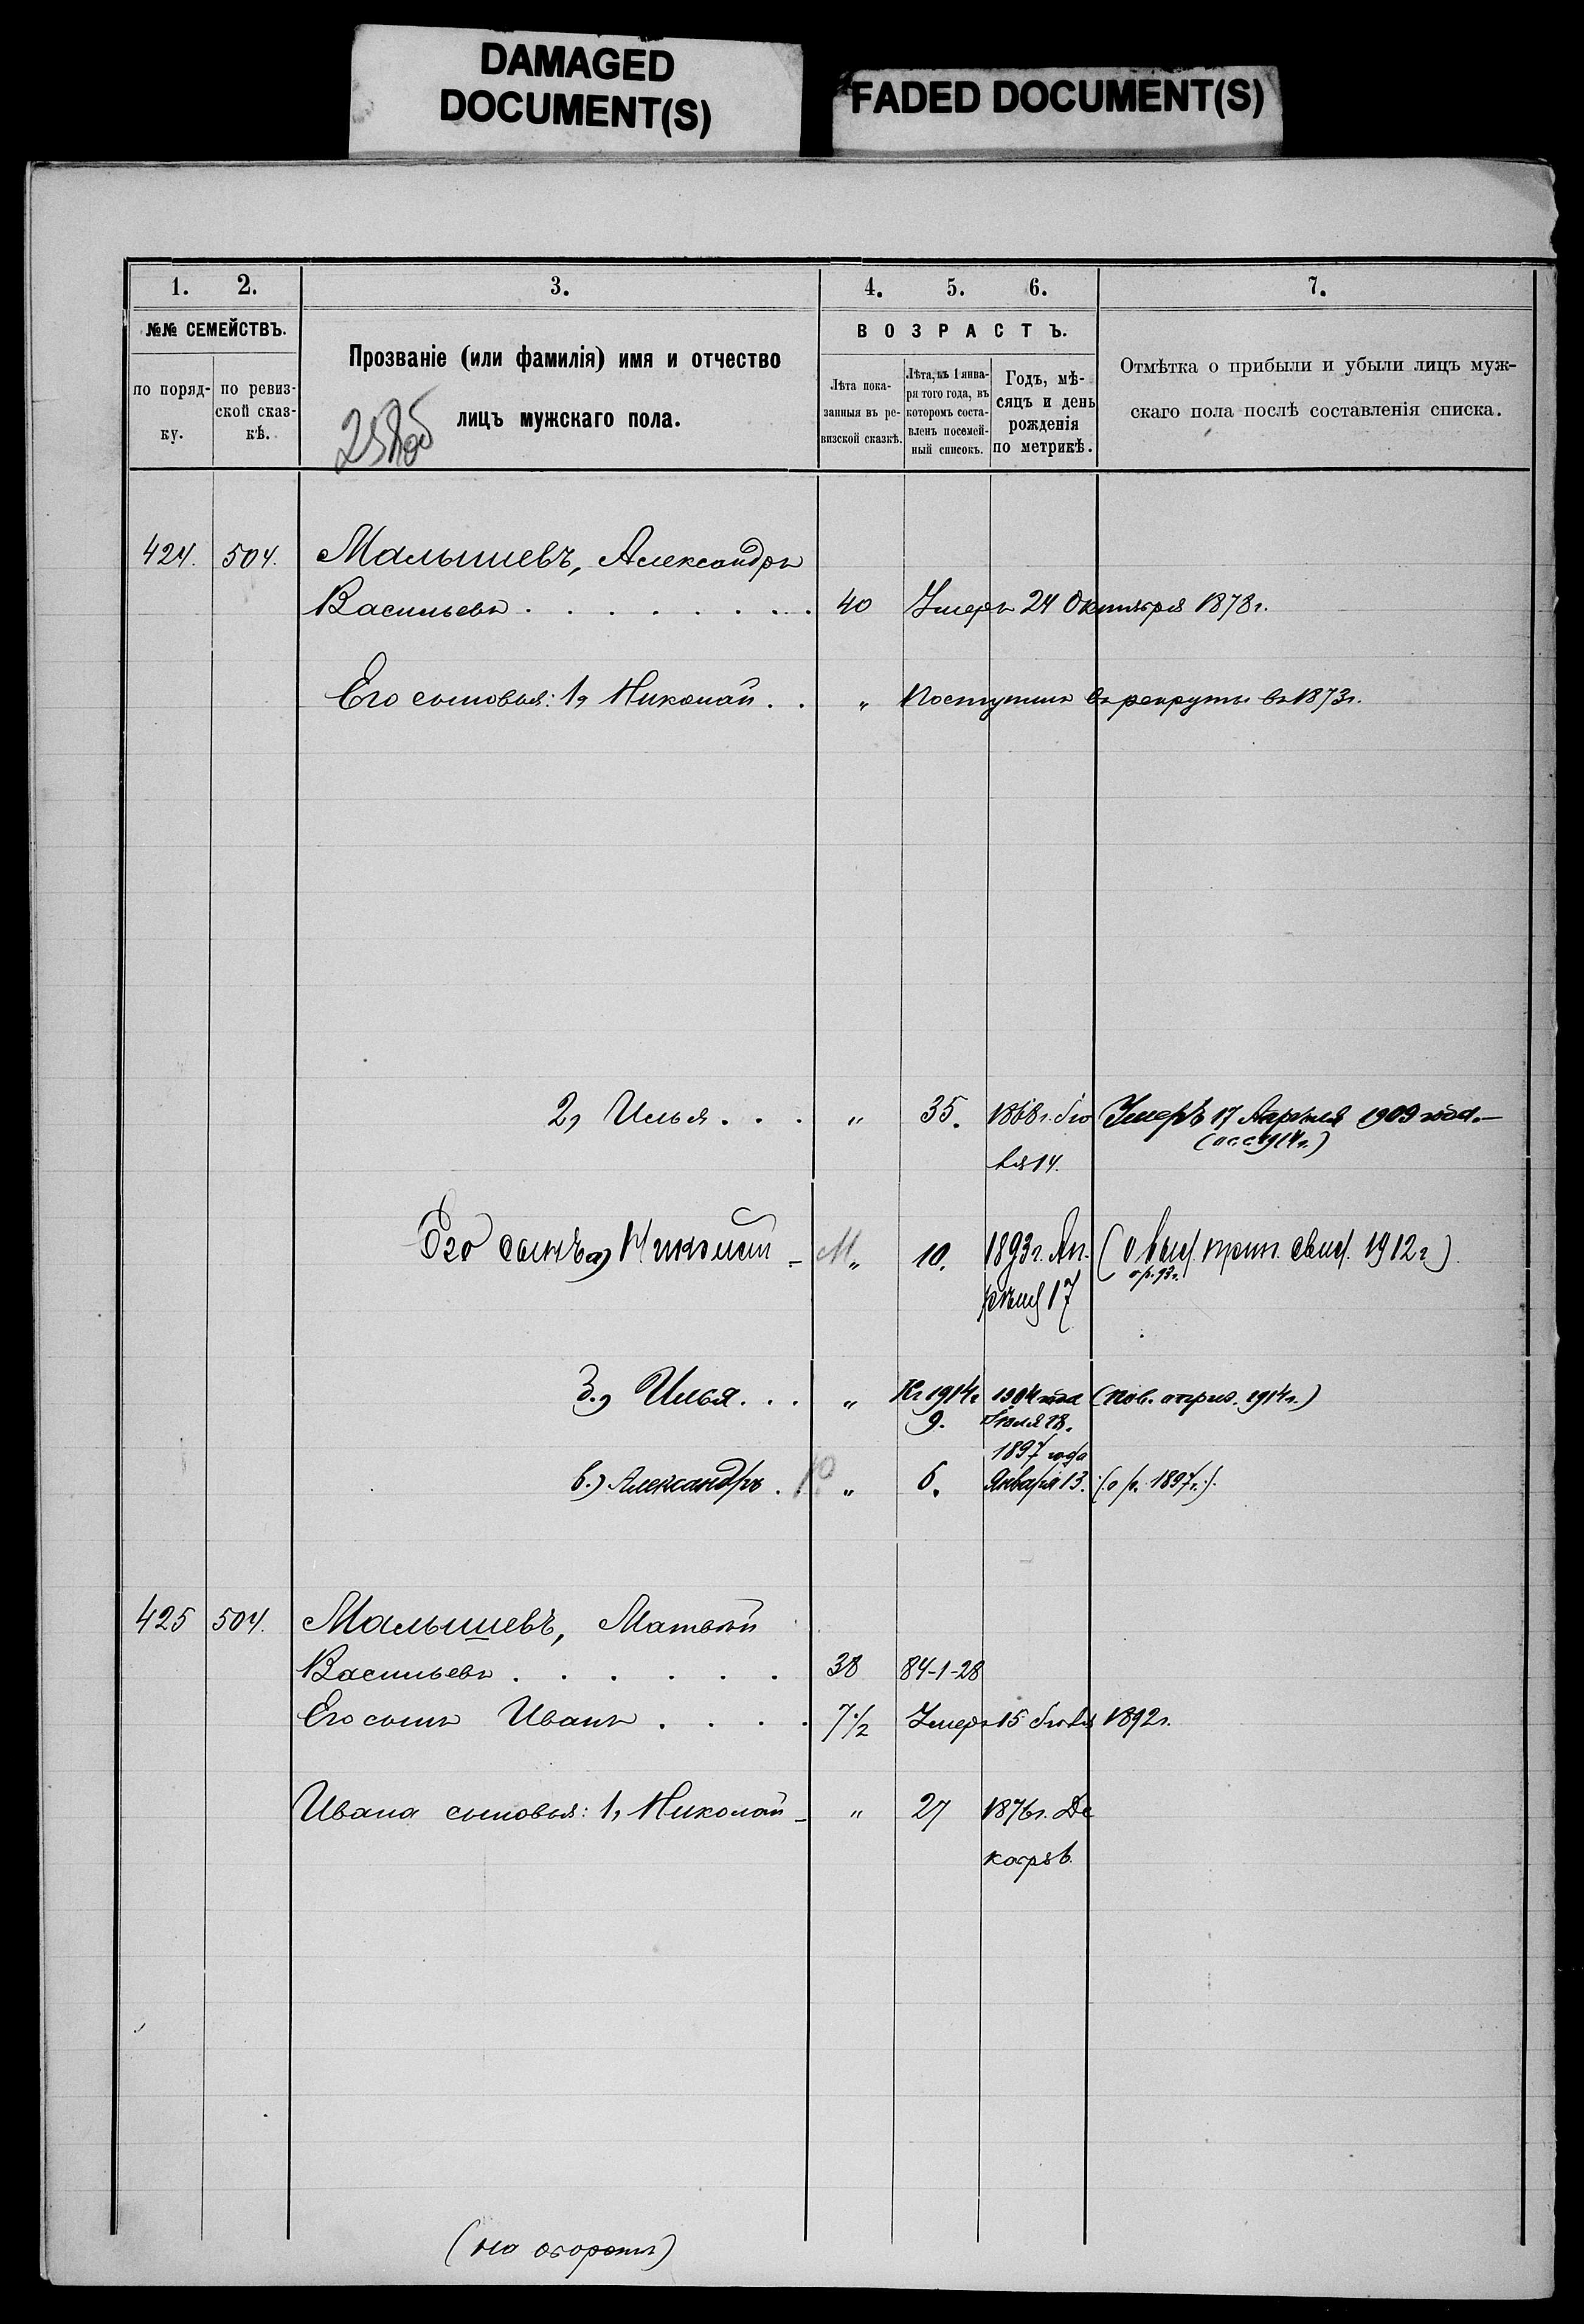 DAMAGED
DOCUMENT(S)
FADED DOCUMENT(S)
1. 2. 3. 4. 5. 6. 7.
№№ СЕМЕЙСТВЪ.
по поряд-
ку.
по ревиз-
ской сказ-
кѣ.
Прозваніе (или фамилія) имя и отчество
лицъ мужскаго пола.
ВОЗРАСТЪ.
Лѣта пока-
занныя въ ре-
визской сказкѣ.
Лѣта, къ 1 янва-
ря того года, въ
которомъ соста-
вленъ посемей-
ный списокъ.
Годъ, мѣ-
сяцъ и день
рожденія
по метрикѣ.
Отмѣтка о прибыли и убыли лицъ муж-
скаго пола послѣ составленія списка.
424. 504. Малышевъ, Александръ
Васильевъ . . . . . . . 40 Умеръ 24 Октября 1878 г.
Его сыновья: 1, Николай . . „ Поступилъ въ рекруты въ 1873 г.
2, Илья . . . „ 35. 1868 г. Iю Умеръ 17 Апрѣля 1909 года. —
ля 14. 1914 г.)
Его сынъ а) Николай - М „ 10. 1893 г. Ап- 1912 г.)
рѣля 17
3.) Илья . . . „ Къ 1914 г. 1904 года 1914 г.)
9. Iюля 18.
1897 года
в.) Александръ . . „ 6. Января 13. (: о р. 1897 г. :)
425 504. Малышевъ, Матвѣй
Васильевъ . . . . . . 38 84-1-28
Его сынъ Иванъ . . . . 7½ Умеръ 15 Iюля 1892 г.
Ивана сыновья: 1, Николай - „ 27 1876 г. Де
кабря 6.
(на оборотѣ)